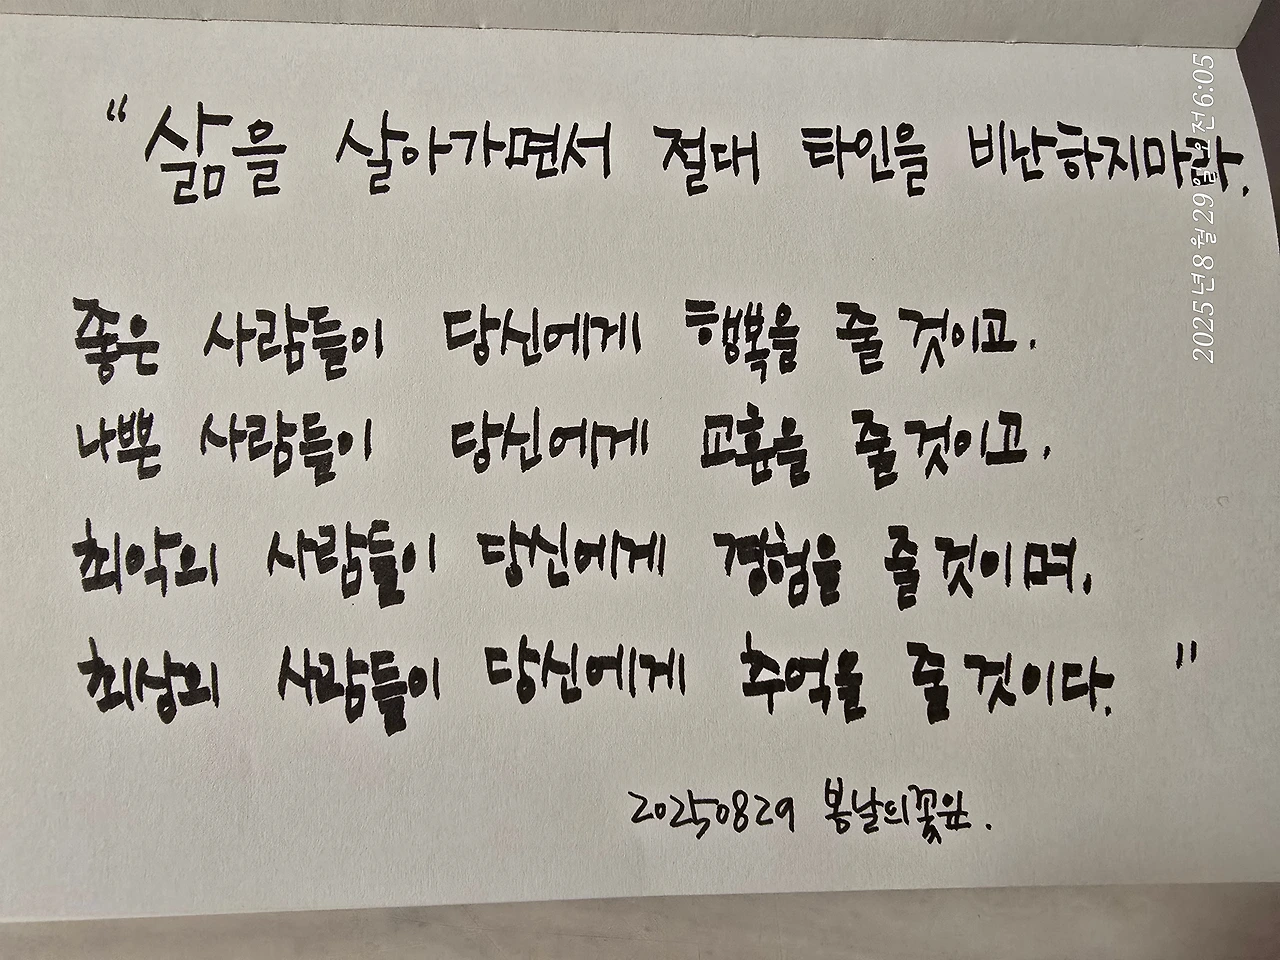 “삶을 살아가면서 절대 타인을 비난하지마라.
좋은 사람들이 당신에게 행복을 줄것이고.
나쁜 사람들이 당신에게 교훈을 줄것이고.
최악의 사람들이 당신에게 경험을 줄것이며.
최상의 사람들이 당신에게 추억을 줄것이다. ”
20250829 봄날의꽃윤.
2025년 8월 29일 오전 6:05